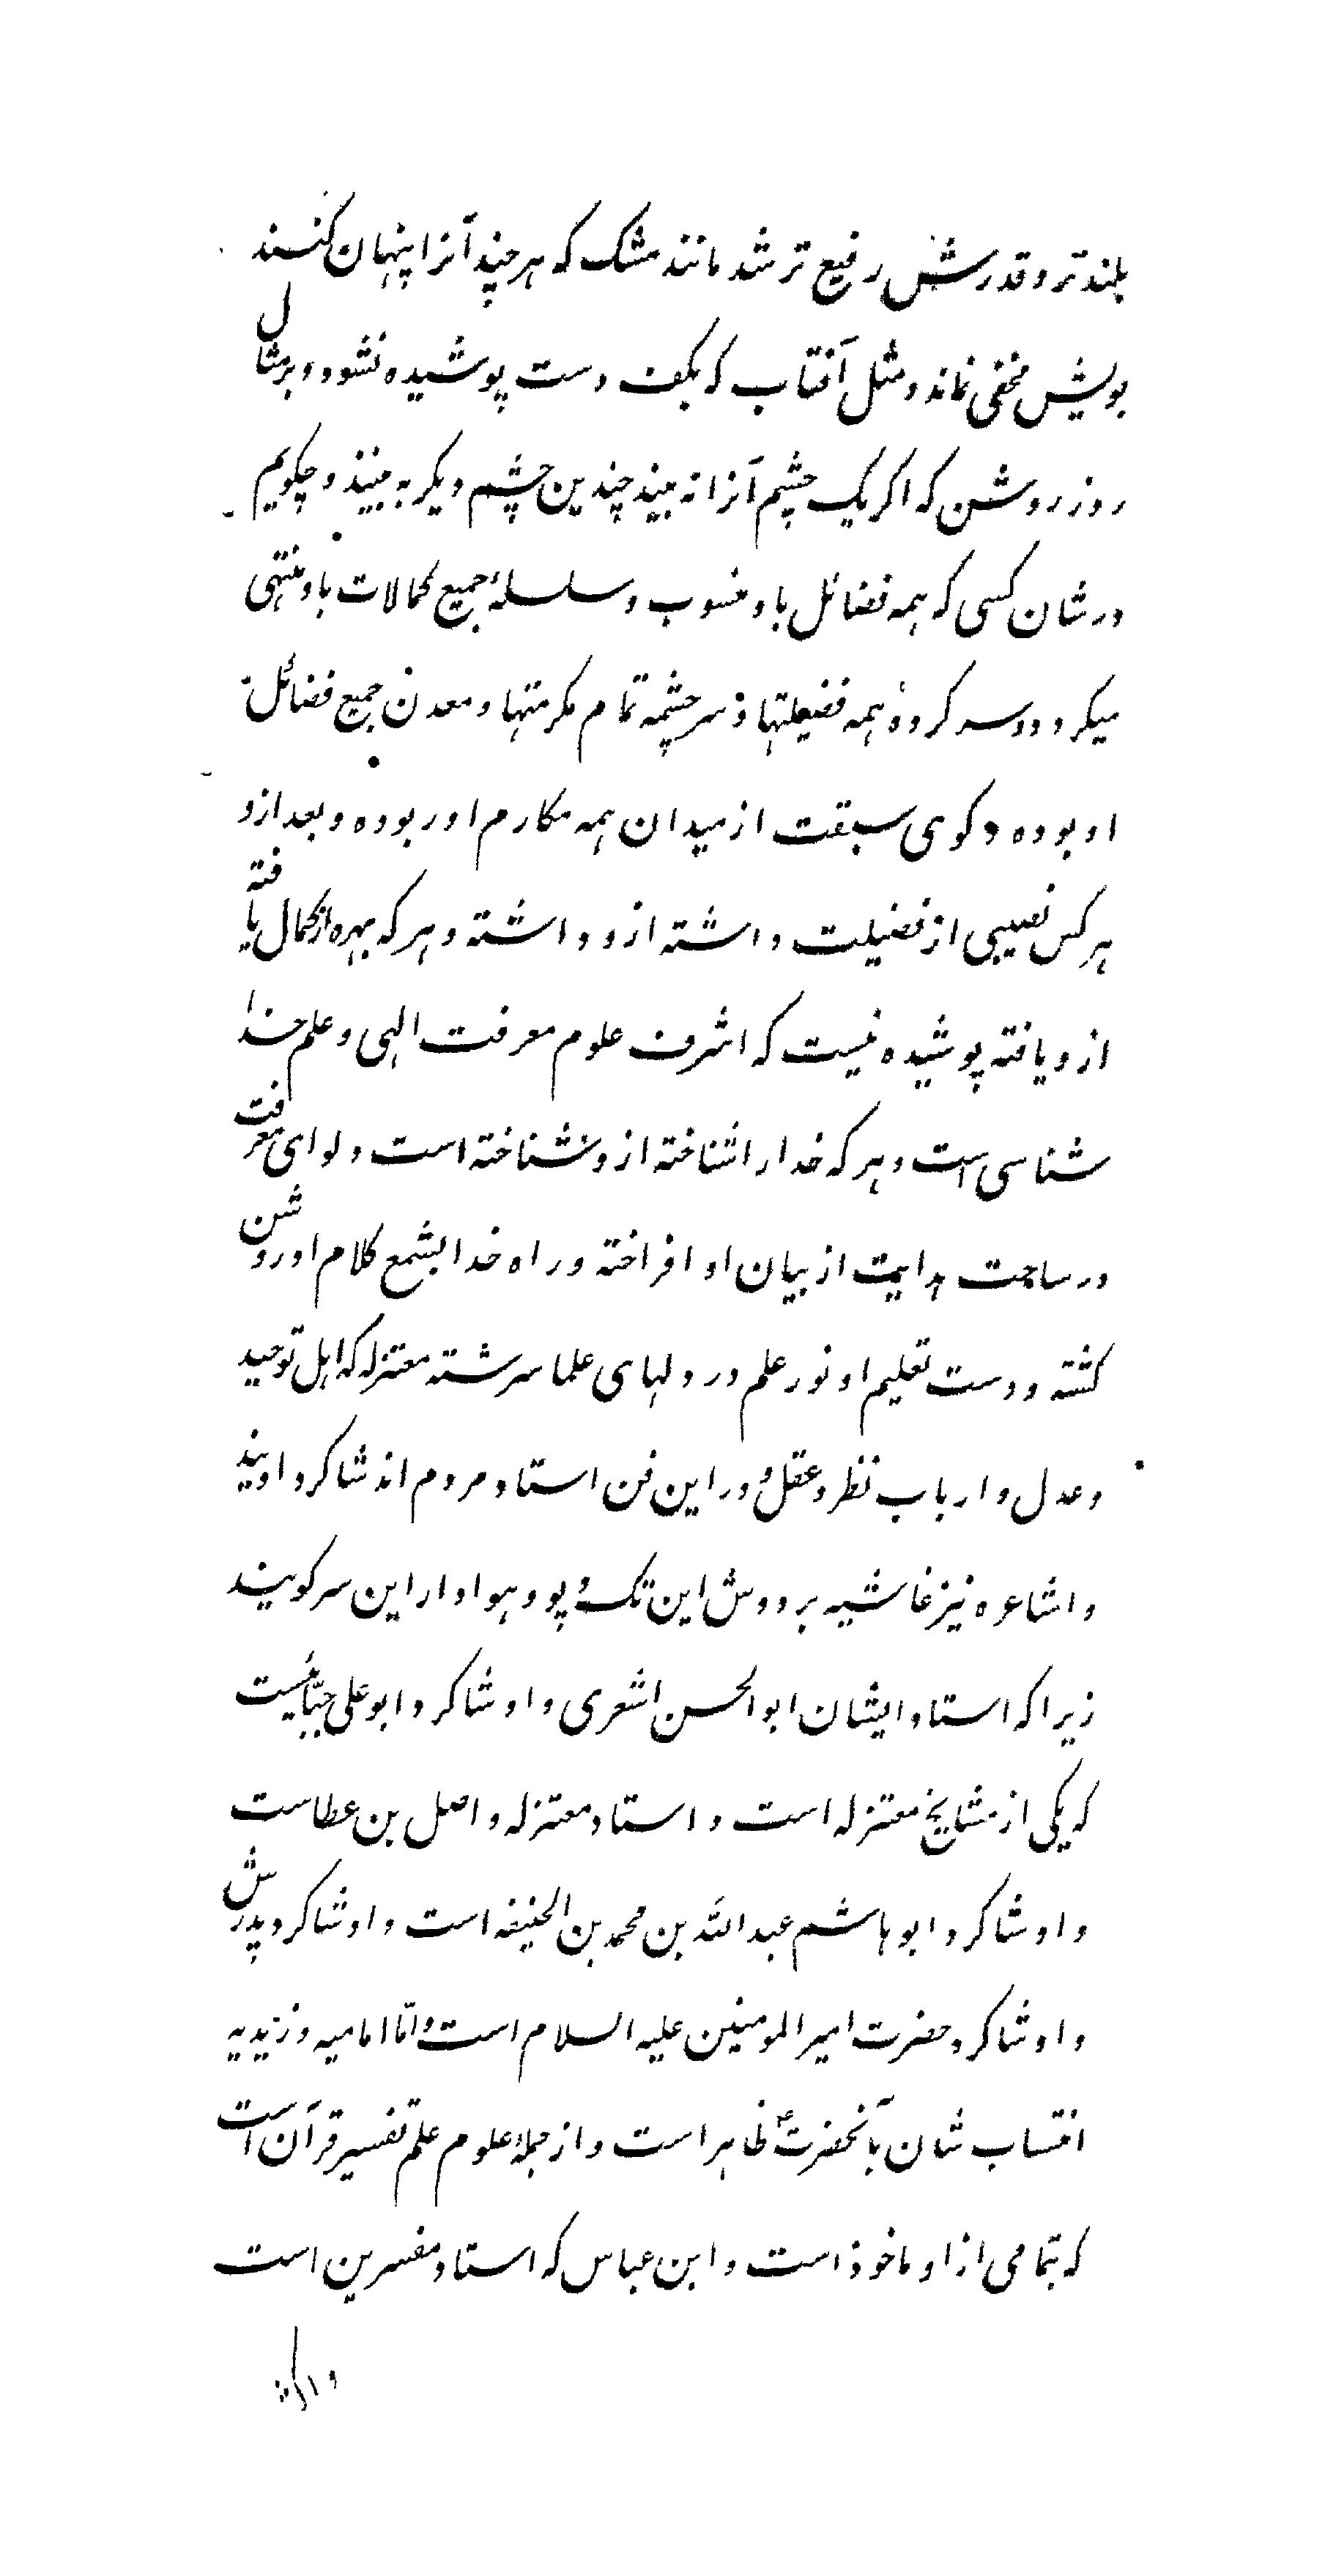 بلندتر و قدرش رفیع تر شد مانند مشک که هر چند آنرا پنهان کنند
بویش مخفی نماند و مثل آفتاب که بکف دست پوشیده نشود و بر مثال
روز روشن که اکر یک چشم آنرا نه بیند چندین چشم دیکر به بینند و چکویم
در شان کسی که همه فضائل باو منسوب و سلسلۀ جمیع کمالات باو منتهی
میکردد و سر کردۀ همه فضیلتها و سرچشمه تمام مکرمتها و معدن جمیع فضائل
او بوده و کوی سبقت از میدان همه مکارم او ربوده و بعد ازو
هر کس نصیبی از فضیلت داشته ازو داشته و هر که بهره از کمال یافته
ازو یافته پوشیده نیست که اشرف علوم معرفت الهی و علم خدا
شناسی است و هر که خدا را شناخته ازو شناخته است و لوای معرفت
در ساحت هدایت از بیان او افراخته و راه خدا بشمع کلام او روشن
کشته و دست تعلیم او نور علم در دلهای علما سرشته معتزله که اهل توحید
و عدل و ارباب نظر و عقل و در این فن استاد مردم اند شاکرد اویند
و اشاعره نیز غاشیه بر دوش این تک و پو و هوادار این سر کویند
زیرا که استاد ایشان ابو الحسن اشعری و او شاکرد ابو علی جبّائیست
که یکی از مشایخ معتزله است و استاد معتزله واصل بن عطاست
و او شاکرد ابو هاشم عبد الله بن محمد بن الحنیفه است و او شاکرد پدرش
و او شاکرد حضرت امیر المومنین علیه السلام است و امّا امامیه و زیدیه
انتساب شان بآنحضرتؑ ظاهر است و از جملۀ علوم علم تفسیر قرآن است
که تمامی از او ماخوذ است و ابن عباس که استاد مفسرین است